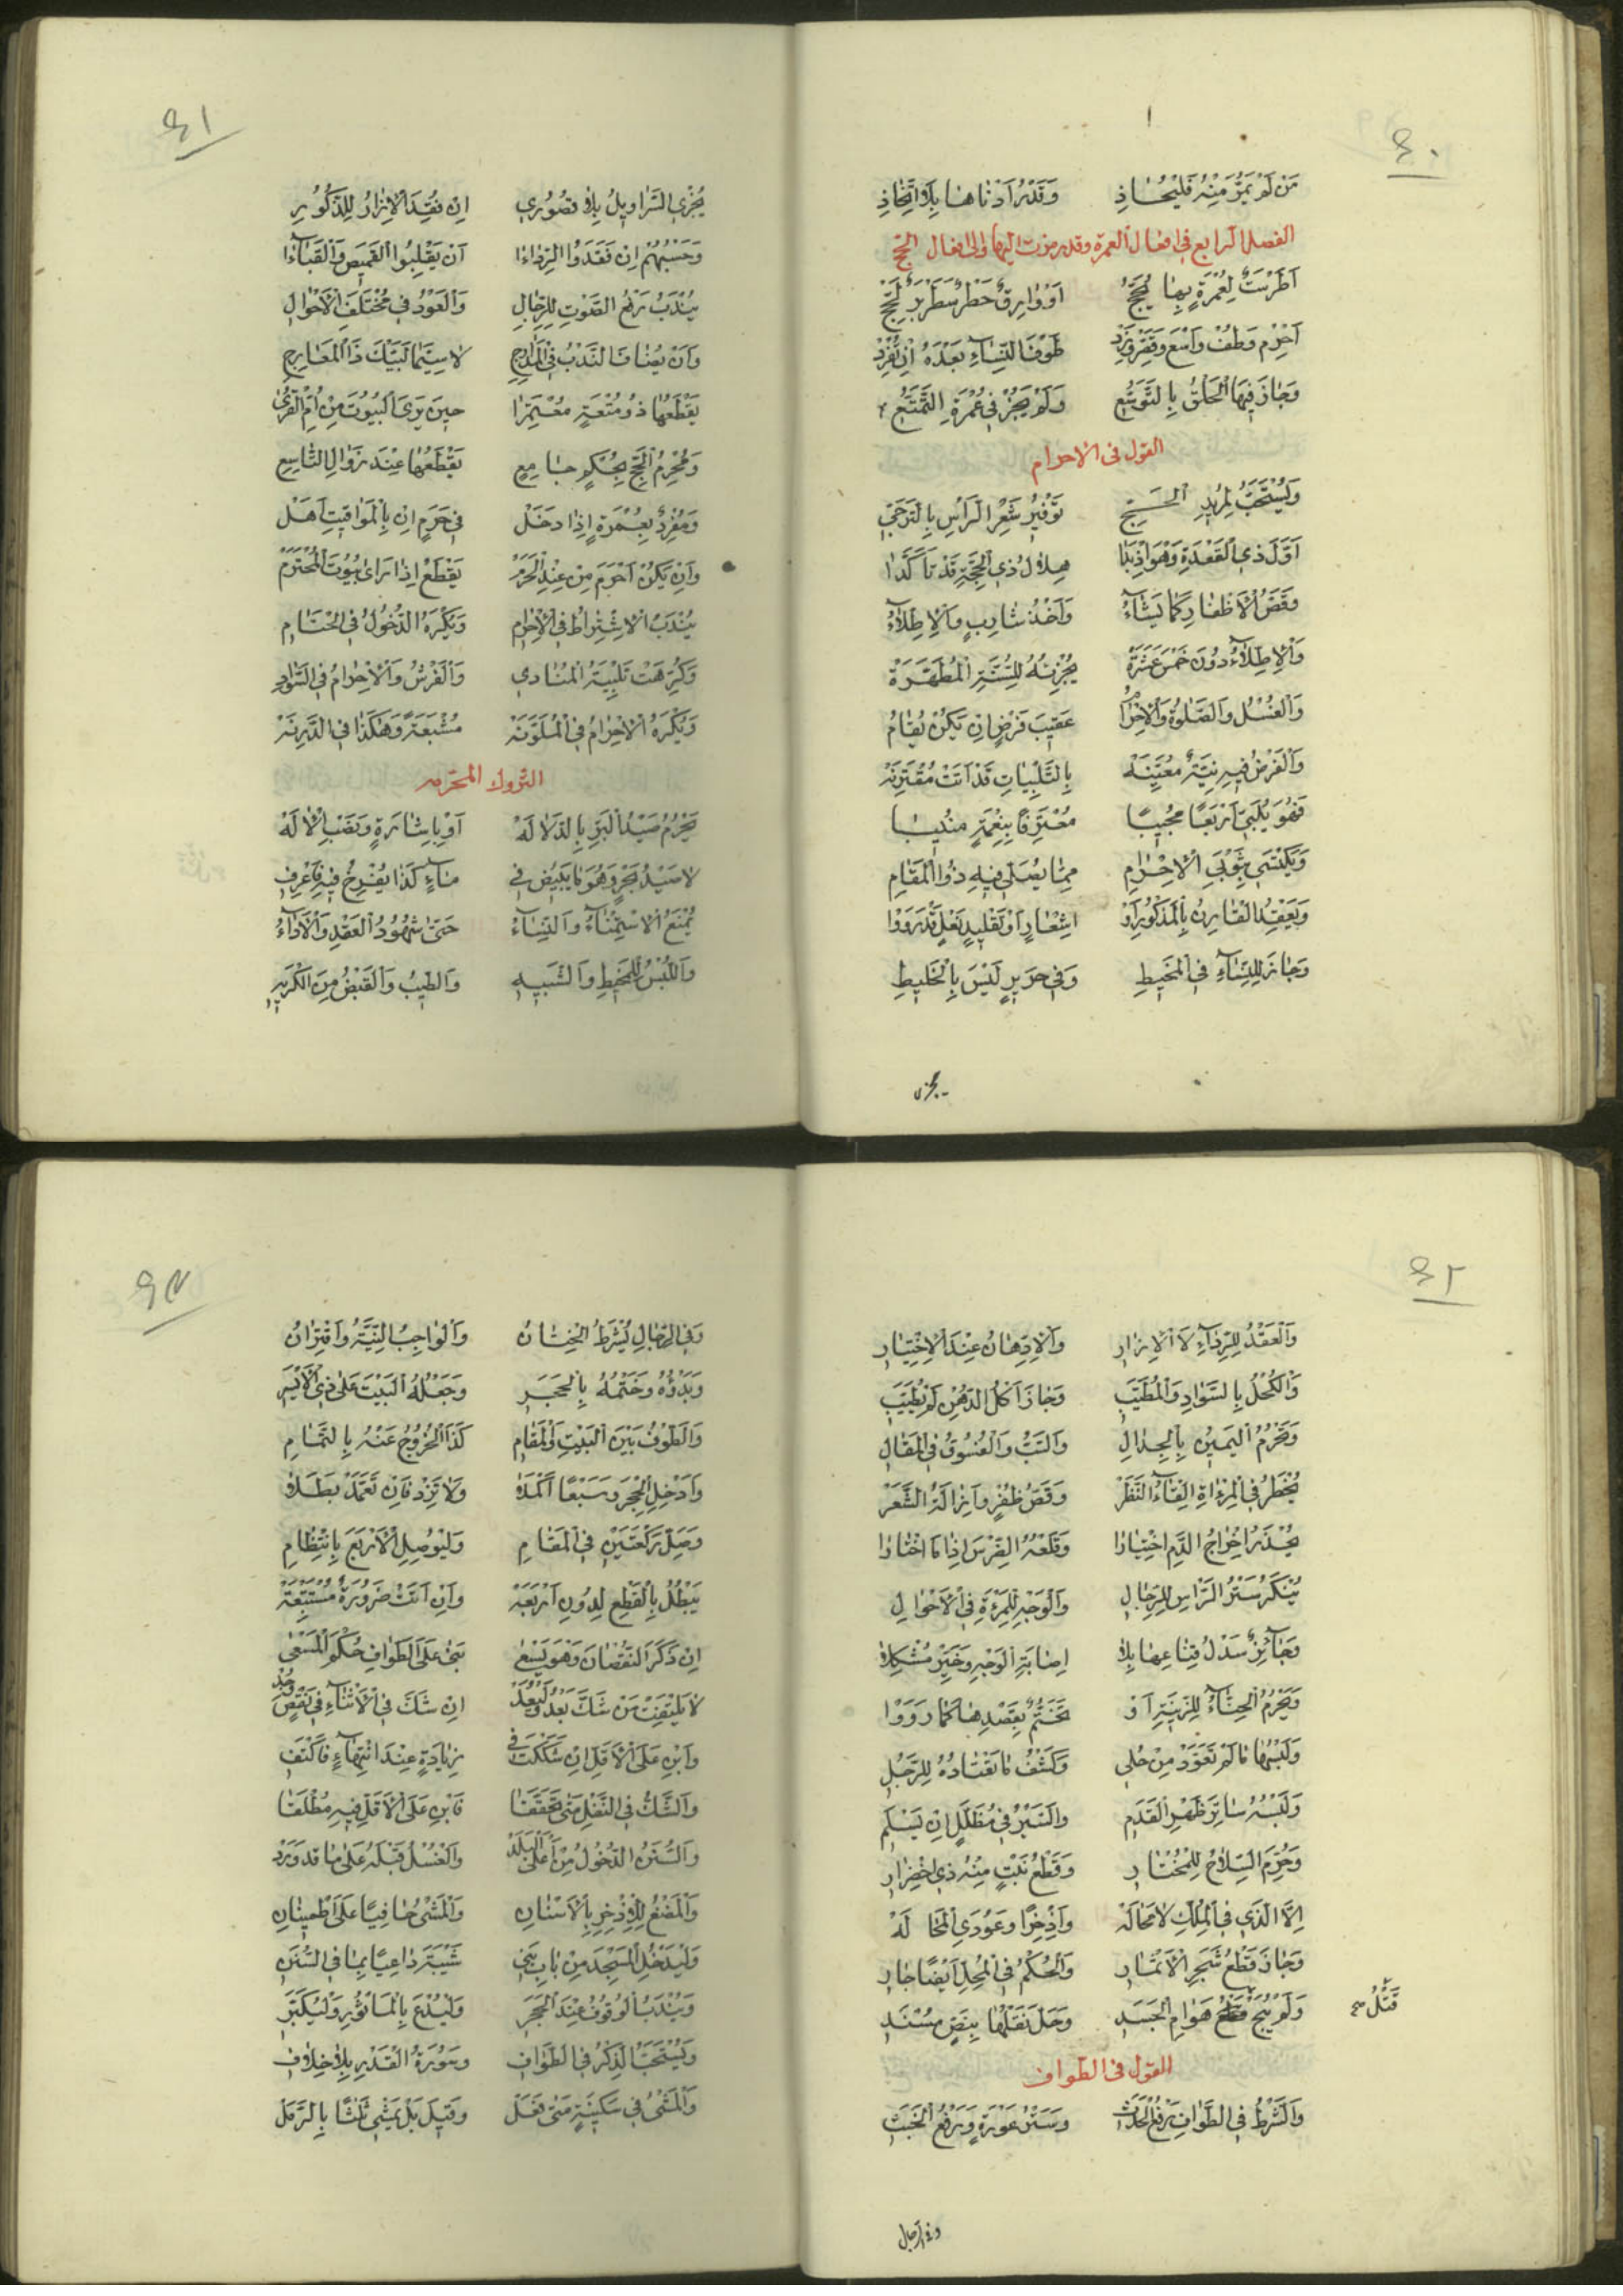 ٤٠
مَنْ لَمْ يَمُرَّ مِنْهُ فَلْيُحَاذِ وَقَدْرُ أَدْنَاهَا بِلَا اتِّخَاذِ
الفصل الرابع في افعال العمرة وقد رمزت اليها والى افعال الحج
أَطْرَسَتْ لِعُمْرَةٍ بِهَا يُحَجُّ
أَحْرِمْ وَطُفْ وَاسْعَ وَقَصِّرْ وَزِدْ طَوْفَ النِّسَاءِ بَعْدَهُ إِنْ تُفْرِدْ
وَجَازَ فِيهَا الْحَلْقُ بِالتَّوَسُّعِ وَلَمْ يَجُزْ فِي عُمْرَةِ التَّمَتُّعِ
القول في الاحرام
وَيُسْتَحَبُّ لِمُرِيدِ الْحَجِّ تَوْفِيرُ شَعْرِ الرَّأْسِ بِالتَّرَجِّي
أَوَّلَ ذِي الْقَعْدَةِ وَهْوَ إِذْ بَدَا هِلَالُ ذِي الْحِجَّةِ قَدْ تَأَكَّدَا
وَقَصُّ الْأَظْفَارِ كَمَا يَشَاءُ وَأَخْذُ شَارِبٍ وَالْإِطْلَاءُ
وَالْإِطْلَاءُ دُونَ خَمْسَ عَشَرَةْ يُجْزِئُهُ لِلسُّنَّةِ الْمُطَهَّرَةْ
وَالْغُسْلُ وَالصَّلٰوةُ وَالْإِحْرَامُ عَقِيبَ فَرْضٍ إِنْ يَكُنْ يُقَامُ
وَالْفَرْضُ فِيهِ نِيَّةٌ مُعَيِّنَةْ بِالتَّلْبِيَاتِ قَدْ أَتَتْ مُقْتَرِنَةْ
فَهُوَ يُلَبِّي أَرْبَعًا مُجِيبًا مُعْتَرِفًا بِنِعْمَةٍ مُنِيبًا
وَيَكْتَسِي بِثَوْبَيِ الْإِحْرَامِ مِمَّا يُصَلِّي فِيهِ ذُو الْمَقَامِ
وَيَعْقِدُ الْقَارِنُ بِالْمَذْكُورِ أَوْ إِشْعَارٍ أَوْ تَقْلِيدِ نَعْلٍ قَدْ رَوَوْا
وَجَازَ لِلنِّسَاءِ فِي الْمَخِيطِ وَفِي حَرِيرٍ لَيْسَ بِالْخَلِيطِ
يجزى
٤١
يُجْزِي السَّرَاوِيلُ بِلَا قُصُورِ إِنْ فُقِدَ الْإِزَارُ لِلذُّكُورِ
وَحَسْبُهُمْ إِنْ فَقَدُوا الرِّدَاءَا أَنْ يَقْلِبُوا الْقَمِيصَ وَالْقَبَاءَا
يُنْدَبُ رَفْعُ الصَّوْتِ لِلرِّجَالِ وَالْعَوْدُ فِي مُخْتَلَفِ الْأَحْوَالِ
وَأَنْ يُضَافَ النَّدْبُ فِي الْمَدَارِجِ لَا سِيَّمَا لَبَّيْكَ ذَا الْمَعَارِجِ
يَقْطَعُهَا ذُو مُتْعَةٍ مُعْتَمِرًا حِينَ يَرَى الْبُيُوتَ مِنْ أُمِّ الْقُرَى
وَمُحْرِمُ الْحَجِّ بِحُكْمٍ جَامِعِ يَقْطَعُهَا عِنْدَ زَوَالِ التَّاسِعِ
وَمُفْرِدٌ بِعُمْرَةٍ إِذَا دَخَلْ فِي حَرَمٍ إِنْ بِالْمَوَاقِيتِ أَهَلْ
وَإِنْ يَكُنْ أَحْرَمَ مِنْ عِنْدِ الْحَرَمْ يَقْطَعْ إِذَا رَأَى بُيُوتَ الْمُحْتَرَمْ
يُنْدَبُ الْاشْتِرَاطُ فِي الْإِحْرَامِ وَيُكْرَهُ الدُّخُولُ فِي الْحَمَّامِ
وَكُرِهَتْ تَلْبِيَةُ الْمُنَادِي وَالْفَرْشُ وَالْإِحْرَامُ فِي السَّوَادِ
وَيُكْرَهُ الْإِحْرَامُ فِي الْمُلَوَّنَةْ مُشْبَعَةً وَهٰكَذَا فِي الدَّرِنَةْ
التروك المحرمه
يَحْرُمُ صَيْدُ الْبَرِّ بِالدَّلَالَةْ أَوْ بِإِشَارَةٍ وَنَصْبِ الْآلَةْ
لَا صَيْدُ بَحْرٍ وَهُوَ مَا يَبِيضُ فِي مَاءٍ كَذَا يُفْرِخُ فِيهِ فَاعْرِفِ
يُمْنَعُ الْاسْتِمْنَاءُ وَالنِّسَاءُ حَتَّى شُهُودُ الْعَقْدِ وَالْأَدَاءُ
وَاللُّبْسُ لِلْمَخِيطِ وَالشَّبِيهِ وَالطِّيبُ وَالْقَبْضُ مِنَ الْكَرِيهِ
٤٢
وَالْعَقْدُ لِلرِّدَاءِ لَا الْإِزَارِ وَالْإِدِّهَانُ عِنْدَ الْاخْتِيَارِ
وَالْكُحْلُ بِالسَّوَادِ وَالْمُطَيَّبِ وَجَازَ أَكْلُ الدُّهْنِ لَمْ يُطَيَّبِ
وَيَحْرُمُ الْيَمِينُ بِالْجِدَالِ وَالسَّبُّ وَالْفُسُوقُ فِي الْمَقَالِ
يُحْظَرُ فِي الْمِرْآةِ إِلْقَاءُ النَّظَرْ وَقَصُّ ظُفْرٍ وَإِزَالَةُ الشَّعَرْ
يُحْذَرُ إِخْرَاجُ الدَّمِ اخْتِيَارَا وَقَلْعُهُ الضِّرْسَ إِذَا مَا اخْتَارَا
يُنْكَرُ سَتْرُ الرَّأْسِ لِلرِّجَالِ وَالْوَجْهِ لِلْمَرْءَةِ فِي الْأَحْوَالِ
وَجَائِزٌ سَدْلُ قِنَاعِهَا بِلَا إِصَابَةِ الْوَجْهِ وَخَيْرٌ مُشْكِلَا
وَيَحْرُمُ الْحِنَّاءُ لِلزِّينَةِ أَوْ تَخَتُّمٌ بِقَصْدِهَا كَمَا رَوَوْا
وَلُبْسُهَا مَا لَمْ تَعَوَّدْ مِنْ حُلِي وَكَشْفُ مَا تَعْتَادُهُ لِلرَّجُلِ
وَلُبْسُهُ سَاتِرَ ظَهْرِ الْقَدَمِ وَالسَّيْرُ فِي مُظَلَّلٍ إِنْ يَسْلَمِ
وَحُرِّمَ السِّلَاحُ لِلْمُخْتَارِ وَقَطْعُ نَبْتٍ مِنْهُ ذِي اخْضِرَارِ
إِلَّا الَّذِي فِي الْمِلْكِ لَا مَحَالَةْ وَإِذْخِرًا وَعُودَيِ الْمَحَالَةْ
وَجَازَ قَطْعُ شَجَرِ الْأَثْمَارِ وَالْحُكْمُ فِي الْمُحِلِّ أَيْضًا جَارِ
وَلَمْ يُبَحْ هَوَامِ الْجَسَدِ وَحَلَّ نَقْلُهَا بِنَصٍّ مُسْنَدِ
قَتْلُ
القول في الطواف
وَالشَّرْطُ فِي الطَّوَافِ رَفْعُ الْحَدَثِ وَسَتْرُ عَوْرَةٍ وَرَفْعُ الْخَبَثِ
وفي الرجال
٤٣
وَفِي الرِّجَالِ يُشْرَطُ الْخِتَانُ وَالْوَاجِبُ النِّيَّةُ وَاقْتِرَانُ
وَبَدْؤُهُ وَخَتْمُهُ بِالْحَجَرِ وَجَعْلُهُ الْبَيْتَ عَلَى ذِي الْأَيْسَرِ
وَالطَّوْفُ بَيْنَ الْبَيْتِ وَالْمَقَامِ كَذَا الْخُرُوجُ عَنْهُ بِالتَّمَامِ
وَأَدْخِلِ الْحِجْرَ وَسَبْعًا أَكْمِلَا وَلَا تَزِدْ فَإِنْ تَعَمَّدْ بَطَلَا
وَصَلِّ رَكْعَتَيْنِ فِي الْمَقَامِ وَلْيُوصِلِ الْأَرْبَعَ بِانْتِظَامِ
يَبْطُلُ بِالْقَطْعِ لِدُونِ أَرْبَعَةْ وَإِنْ أَتَتْ ضَرُورَةٌ مُسْتَتْبِعَةْ
إِنْ ذَكَرَ النُّقْصَانَ وَهْوَ يَسْعَى بَنَى عَلَى الطَّوَافِ حُكْمَ الْمَسْعَى
لَا يَلْتَفِتْ مَنْ شَكَّ بَعْدُ وَلْيُعِدْ إِنْ شَكَّ فِي الْأَثْنَاءِ فِي نَقْصٍ وُجِدْ
وَابْنِ عَلَى الْأَقَلِّ إِنْ شَكَكْتَ فِي زِيَادَةٍ عِنْدَ انْتِهَاءٍ فَاكْتَفِ
وَالشَّكُّ فِي النَّفْلِ مَتَى تَحَقَّقَا فَابْنِ عَلَى الْأَقَلِّ فِيهِ مُطْلَقَا
وَالسُّنَنُ الدُّخُولُ مِنْ أَعْلَى الْبَلَدْ وَالْغُسْلُ قَبْلَهُ عَلَى مَا قَدْ وَرَدْ
وَالْمَضْغُ لِلْإِذْخِرِ بِالْأَسْنَانِ وَالْمَشْيُ حَافِيًا عَلَى اطْمِينَانِ
وَلْيَدْخُلِ الْمَسْجِدَ مِنْ بَابِ بَنِي شَيْبَةَ دَاعِيًا بِمَا فِي السُّنَنِ
وَيُنْدَبُ الْوُقُوفُ عِنْدَ الْحَجَرِ وَلْيَدْعُ بِالْمَأْثُورِ وَلْيُكَبِّرِ
وَيُسْتَحَبُّ الذِّكْرُ فِي الطَّوَافِ وَسُورَةُ الْقَدْرِ بِلَا خِلَافِ
وَالْمَشْيُ فِي سَكِينَةٍ مَتَى فَعَلْ وَقِيلَ بَلْ يَمْشِي ثَلٰثًا بِالرَّمَلْ